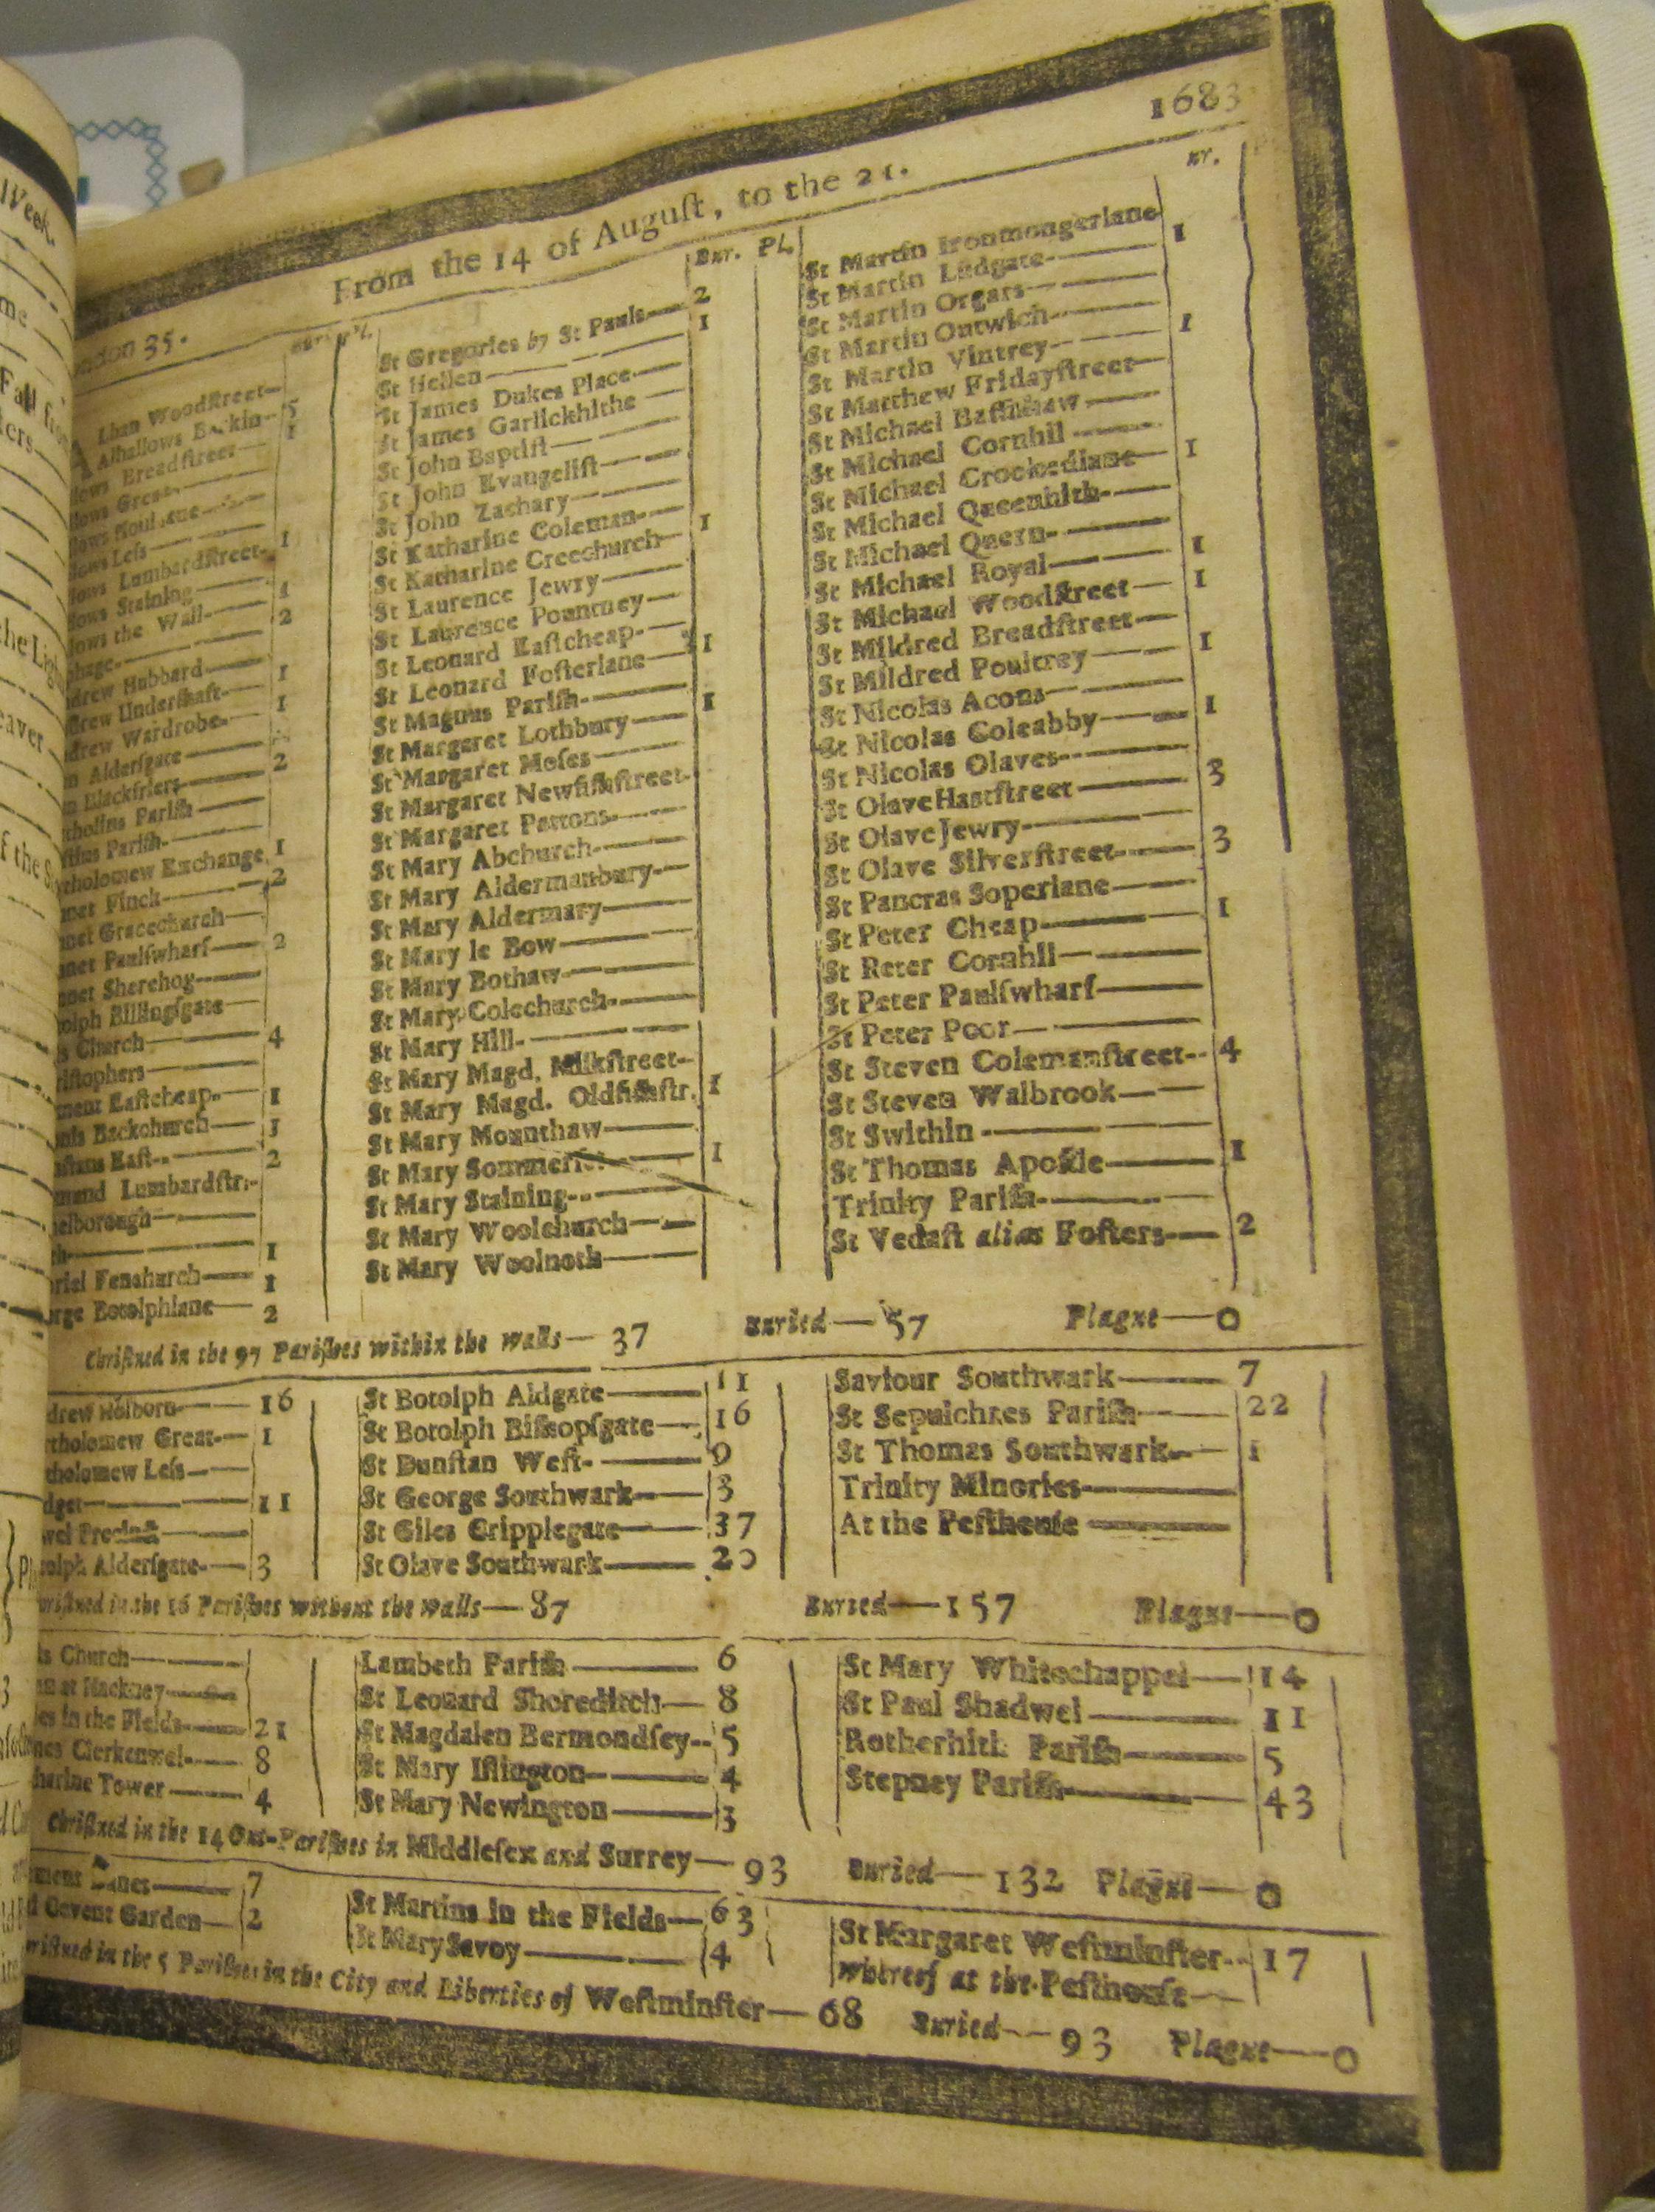 1683
From the 14 of Auguſt, to the 21.
35.
Bur. Pl.
Woodſtreet
Alhallows
Breadſtreet
Lumbardſtreet 1
Staining
the Wall 1
2
Hubbard
Underſhaft 1
Wardrobe 1
Alderſgate
Blackfriers 2
Pariſh
Pariſh
Exchange 1
Finck 2
Gracechurch
Paulſwharf 2
Sherehog
Billingſgate
Church 4
Eaſtcheap 1
Backchurch
Eaſt 2
Lumbardſtr.
1
Fenchurch 1
Botolphlane 2
St Gregories by St Pauls 2
St Hellen 1
St James Dukes Place
St James Garlickhithe
St John Baptiſt
St John Evangeliſt
St John Zachary
St Katharine Coleman
St Katharine Creechurch 1
St Laurence Jewry
St Laurence Pountney
St Leonard Eaſtcheap
St Leonard Foſterlane 1
St Magnus Pariſh
St Margaret Lothbury 1
St Margaret Moſes
St Margaret Newfiſhſtreet
St Margaret Pattons
St Mary Abchurch
St Mary Aldermanbury
St Mary Aldermary
St Mary le Bow
St Mary Bothaw
St Mary Colechurch
St Mary Hill
St Mary Magd. Milkſtreet
St Mary Magd. Oldfiſhſtr. 1
St Mary Mounthaw
St Mary 1
St Mary Staining
St Mary Woolchurch
St Mary Woolnoth
St Martin Ironmongerlane
St Martin Ludgate 1
St Martin Orgars
St Martin Outwich
St Martin Vintrey 1
St Matthew Fridayſtreet
St Michael Baſſiſhaw
St Michael Cornhil
St Michael Crookedlane 1
St Michael Queenhith
St Michael Quern
St Michael Royal 1
St Michael Woodſtreet 1
St Mildred Breadſtreet
St Mildred Poultrey 1
St Nicolas Acons
St Nicolas Coleabby 1
St Nicolas Olaves
St Olave Hartſtreet 3
St Olave Jewry
St Olave Silverſtreet 3
St Pancras Soperlane
St Peter Cheap 1
St Peter Cornhil
St Peter Paulſwharf
St Peter Poor
St Steven Colemanſtreet 4
St Steven Walbrook
St Swithin
St Thomas Apoſtle 1
Trinity Pariſh
St Vedaſt alias Foſters 2
Chriſtned in the 97 Pariſhes within the walls— 37 Buried— 57 Plague— 0
Holborn 16
Great 1
Leſs
11
Precinct
Alderſgate 3
St Botolph Aldgate 11
St Botolph Biſhopſgate 16
St Dunſtan Weſt 9
St George Southwark 3
St Giles Cripplegate 37
St Olave Southwark 20
Saviour Southwark 7
St Sepulchres Pariſh 22
St Thomas Southwark 1
Trinity Minories
At the Peſthouſe
in the 16 Pariſhes without the walls— 87 Buried— 157 Plague— 0
Church
at Hackney
in the Fields 21
Clerkenwel 8
Tower 4
Lambeth Pariſh 6
St Leonard Shoreditch 8
St Magdalen Bermondſey 5
St Mary Iſlington 4
St Mary Newington 3
St Mary Whitechappel 14
St Paul Shadwel 11
Rotherhith Pariſh 5
Stepney Pariſh 43
Chriſtned in the 14 Out-Pariſhes in Middleſex and Surrey— 93 Buried— 132 Plague— 0
Danes 7
Covent Garden 2
St Martins in the Fields 63
St Mary Savoy 4
St Margaret Weſtminſter 17
whereof at the Peſthouſe
in the 5 Pariſhes in the City and Liberties of Weſtminſter— 68 Buried— 93 Plague— 0